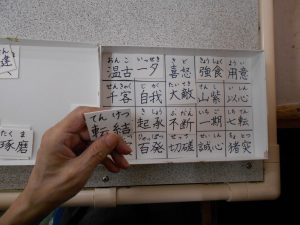 たつ
達
たくま
琢磨
おんこ いっせき きど きょうしょく ようい
温古 一夕 喜怒 強食 用意
せんきゃく じが たいてき さんし いしん
千客 自我 大敵 山紫 以心
てんけつ
転結
きしょう ふだん いちご しちてん
起承 不断 一期 七転
ひゃっぱつ せっさ せいしん ちょとつ
百発 切磋 誠心 猪突